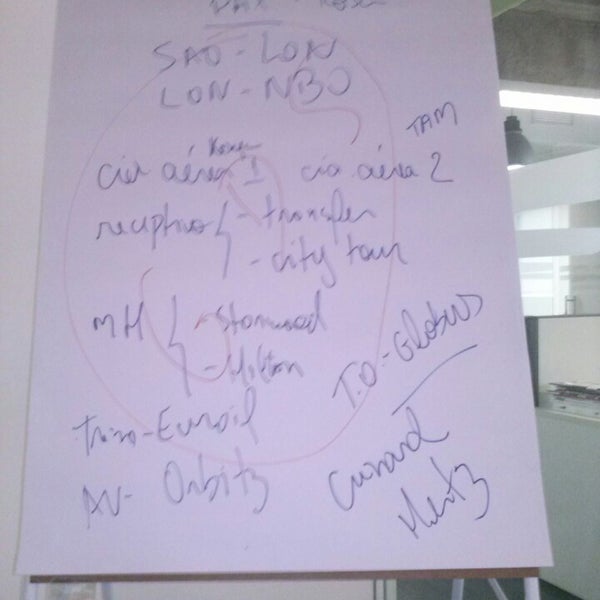 PAX -
SAO - LON
LON - NBO
TAM
cia aérea 1 cia aérea 2
receptivo { - transfer
- city tour
MH { - Starwood
- Hilton
T.O - Globus
Trem - Eurail
AV - Orbitz
Cunard
Hertz